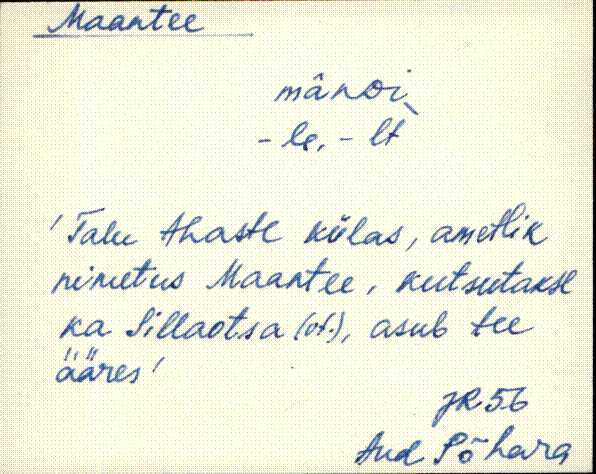 Maantee
mânoi
-le, -lt
'Talu Ahaste külas, ametlik
nimetus Maantee, kutsutakse
ka Sillaotsa (vt.), asub tee
ääres'
JR 56
Aud Põhara